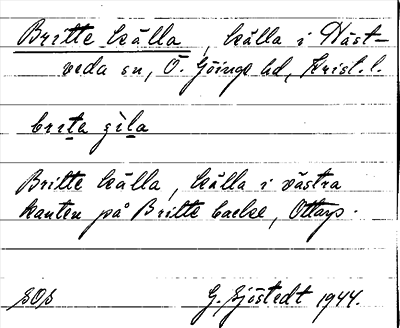 Britte källa, källa i Häst-
veda sn, Ö. Göinge hd, Krist. l.
brita çäla
Britte källa, källa i västra
kanten på Britte backe, Ottarp.
SOS
G. Sjöstedt 1944.